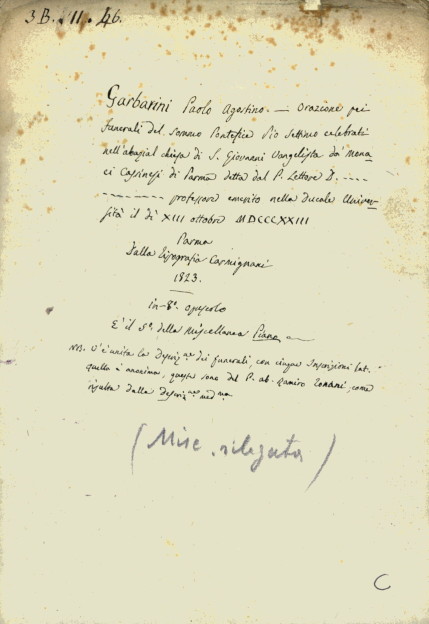 3 B. 11. 46.
Garbarini Paolo Agostino. — Orazione pei
funerali del sommo Pontefice Pio Settimo celebrati
nell'abazial chiesa di S. Giovanni Vangelista da Mona-
ci Cassinesi di Parma detta dal P. Lettore D. ----
-------- professore emerito nella Ducale Univer-
sità il dì XIII ottobre MDCCCXXIII
Parma
Dalla Tipografia Carmignani
1823.
in-8.° opuscolo
E' il 5.° della Miscellanea Piana
NB. V'è unita la Descriz.ne dei funerali, con cinque Inscrizioni lat.
quella è anonima, queste sono del P. ab. Ramiro Tonani, come
risulta dalla descriz.ne med.ma
(Misc. rilegata)
C